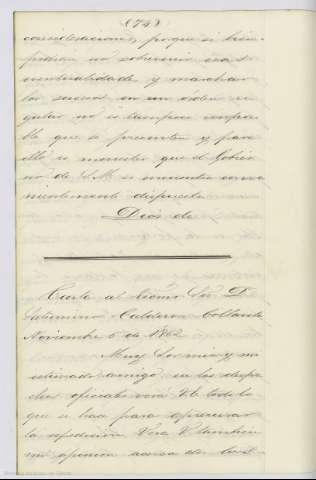 (748)
consideraciones, porque si bien
podrían no sobrevenir esas
eventualidades y marchar
los sucesos en un órden re-
gular no es tampoco imposi-
ble que se presenten y para
ello es menester que el Gobier-
no de S.M. se encuentre conve-
nientemente dispuesto
Dios &c.
Carta al Excmo. Sor. D.
Saturnino Calderon Collantes
Noviembre 6 de 1862
Muy Sor. mio y mi
estimado amigo: en los despa-
chos oficiales verá V.E. todo lo
que se hace para apresurar
la expedicion. Verá V. tambien
mi opinion acerca de